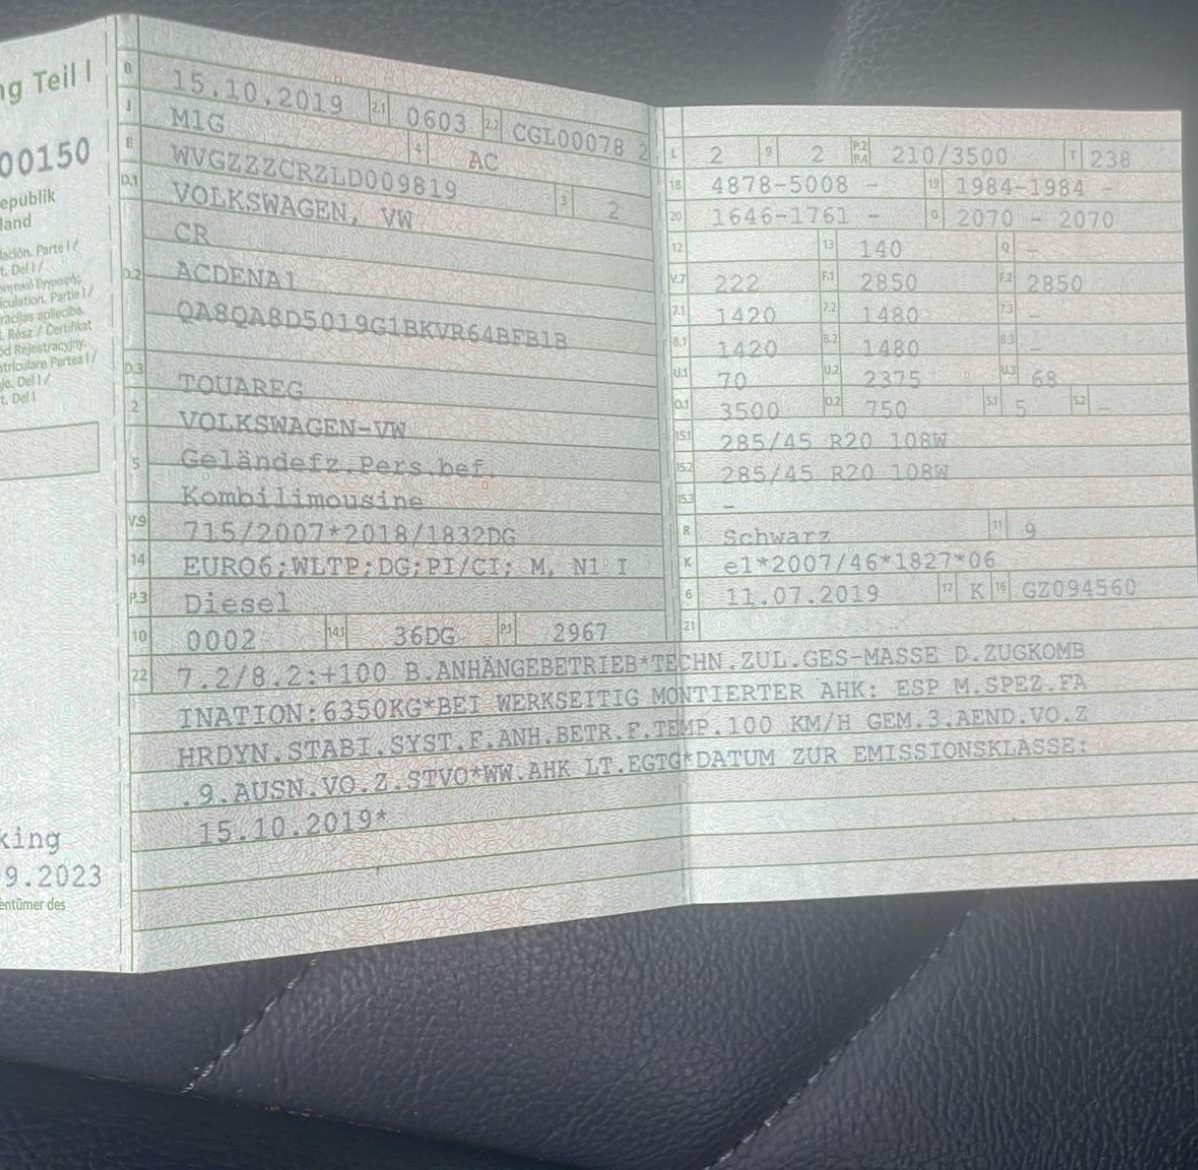 ng Teil I
00150
epublik
land
lación. Parte I /
t. Del I /
iculation. Partie I /
rácijas apliecība.
. Rész / Ċertifikat
d Rejestracyjny.
triculare Partea I /
je. Del I /
t. Del I
king
9.2023
entümer des
B 15.10.2019 2.1 0603 2.2 CGL00078 2
J M1G 4 AC
E WVGZZZCRZLD009819 3 2
D.1 VOLKSWAGEN, VW
CR
D.2 ACDENA1
QA8QA8D5019G1BKVR64BFB1B
D.3 TOUAREG
2 VOLKSWAGEN-VW
5 Geländefz.Pers.bef.
Kombilimousine
V.9 715/2007*2018/1832DG
14 EURO6;WLTP;DG;PI/CI; M, N1 I
P.3 Diesel
10 0002 14.1 36DG P.1 2967
L 2 9 2 P.2 P.4 210/3500 T 238
18 4878-5008 - 19 1984-1984 -
20 1646-1761 - G 2070 - 2070
12 13 140 Q -
V.7 222 F.1 2850 F.2 2850
7.1 1420 7.2 1480 7.3 -
8.1 1420 8.2 1480 8.3 -
U.1 70 U.2 2375 U.3 68
O.1 3500 O.2 750 S.1 5 S.2 -
15.1 285/45 R20 108W
15.2 285/45 R20 108W
15.3 -
R Schwarz 11 9
K e1*2007/46*1827*06
6 11.07.2019 17 K 16 GZ094560
21
22 7.2/8.2:+100 B.ANHÄNGEBETRIEB*TECHN.ZUL.GES-MASSE D.ZUGKOMB
INATION:6350KG*BEI WERKSEITIG MONTIERTER AHK: ESP M.SPEZ.FA
HRDYN.STABI.SYST.F.ANH.BETR.F.TEMP.100 KM/H GEM.3.AEND.VO.Z
.9.AUSN.VO.Z.STVO*WW.AHK LT.EGTG*DATUM ZUR EMISSIONSKLASSE:
15.10.2019*